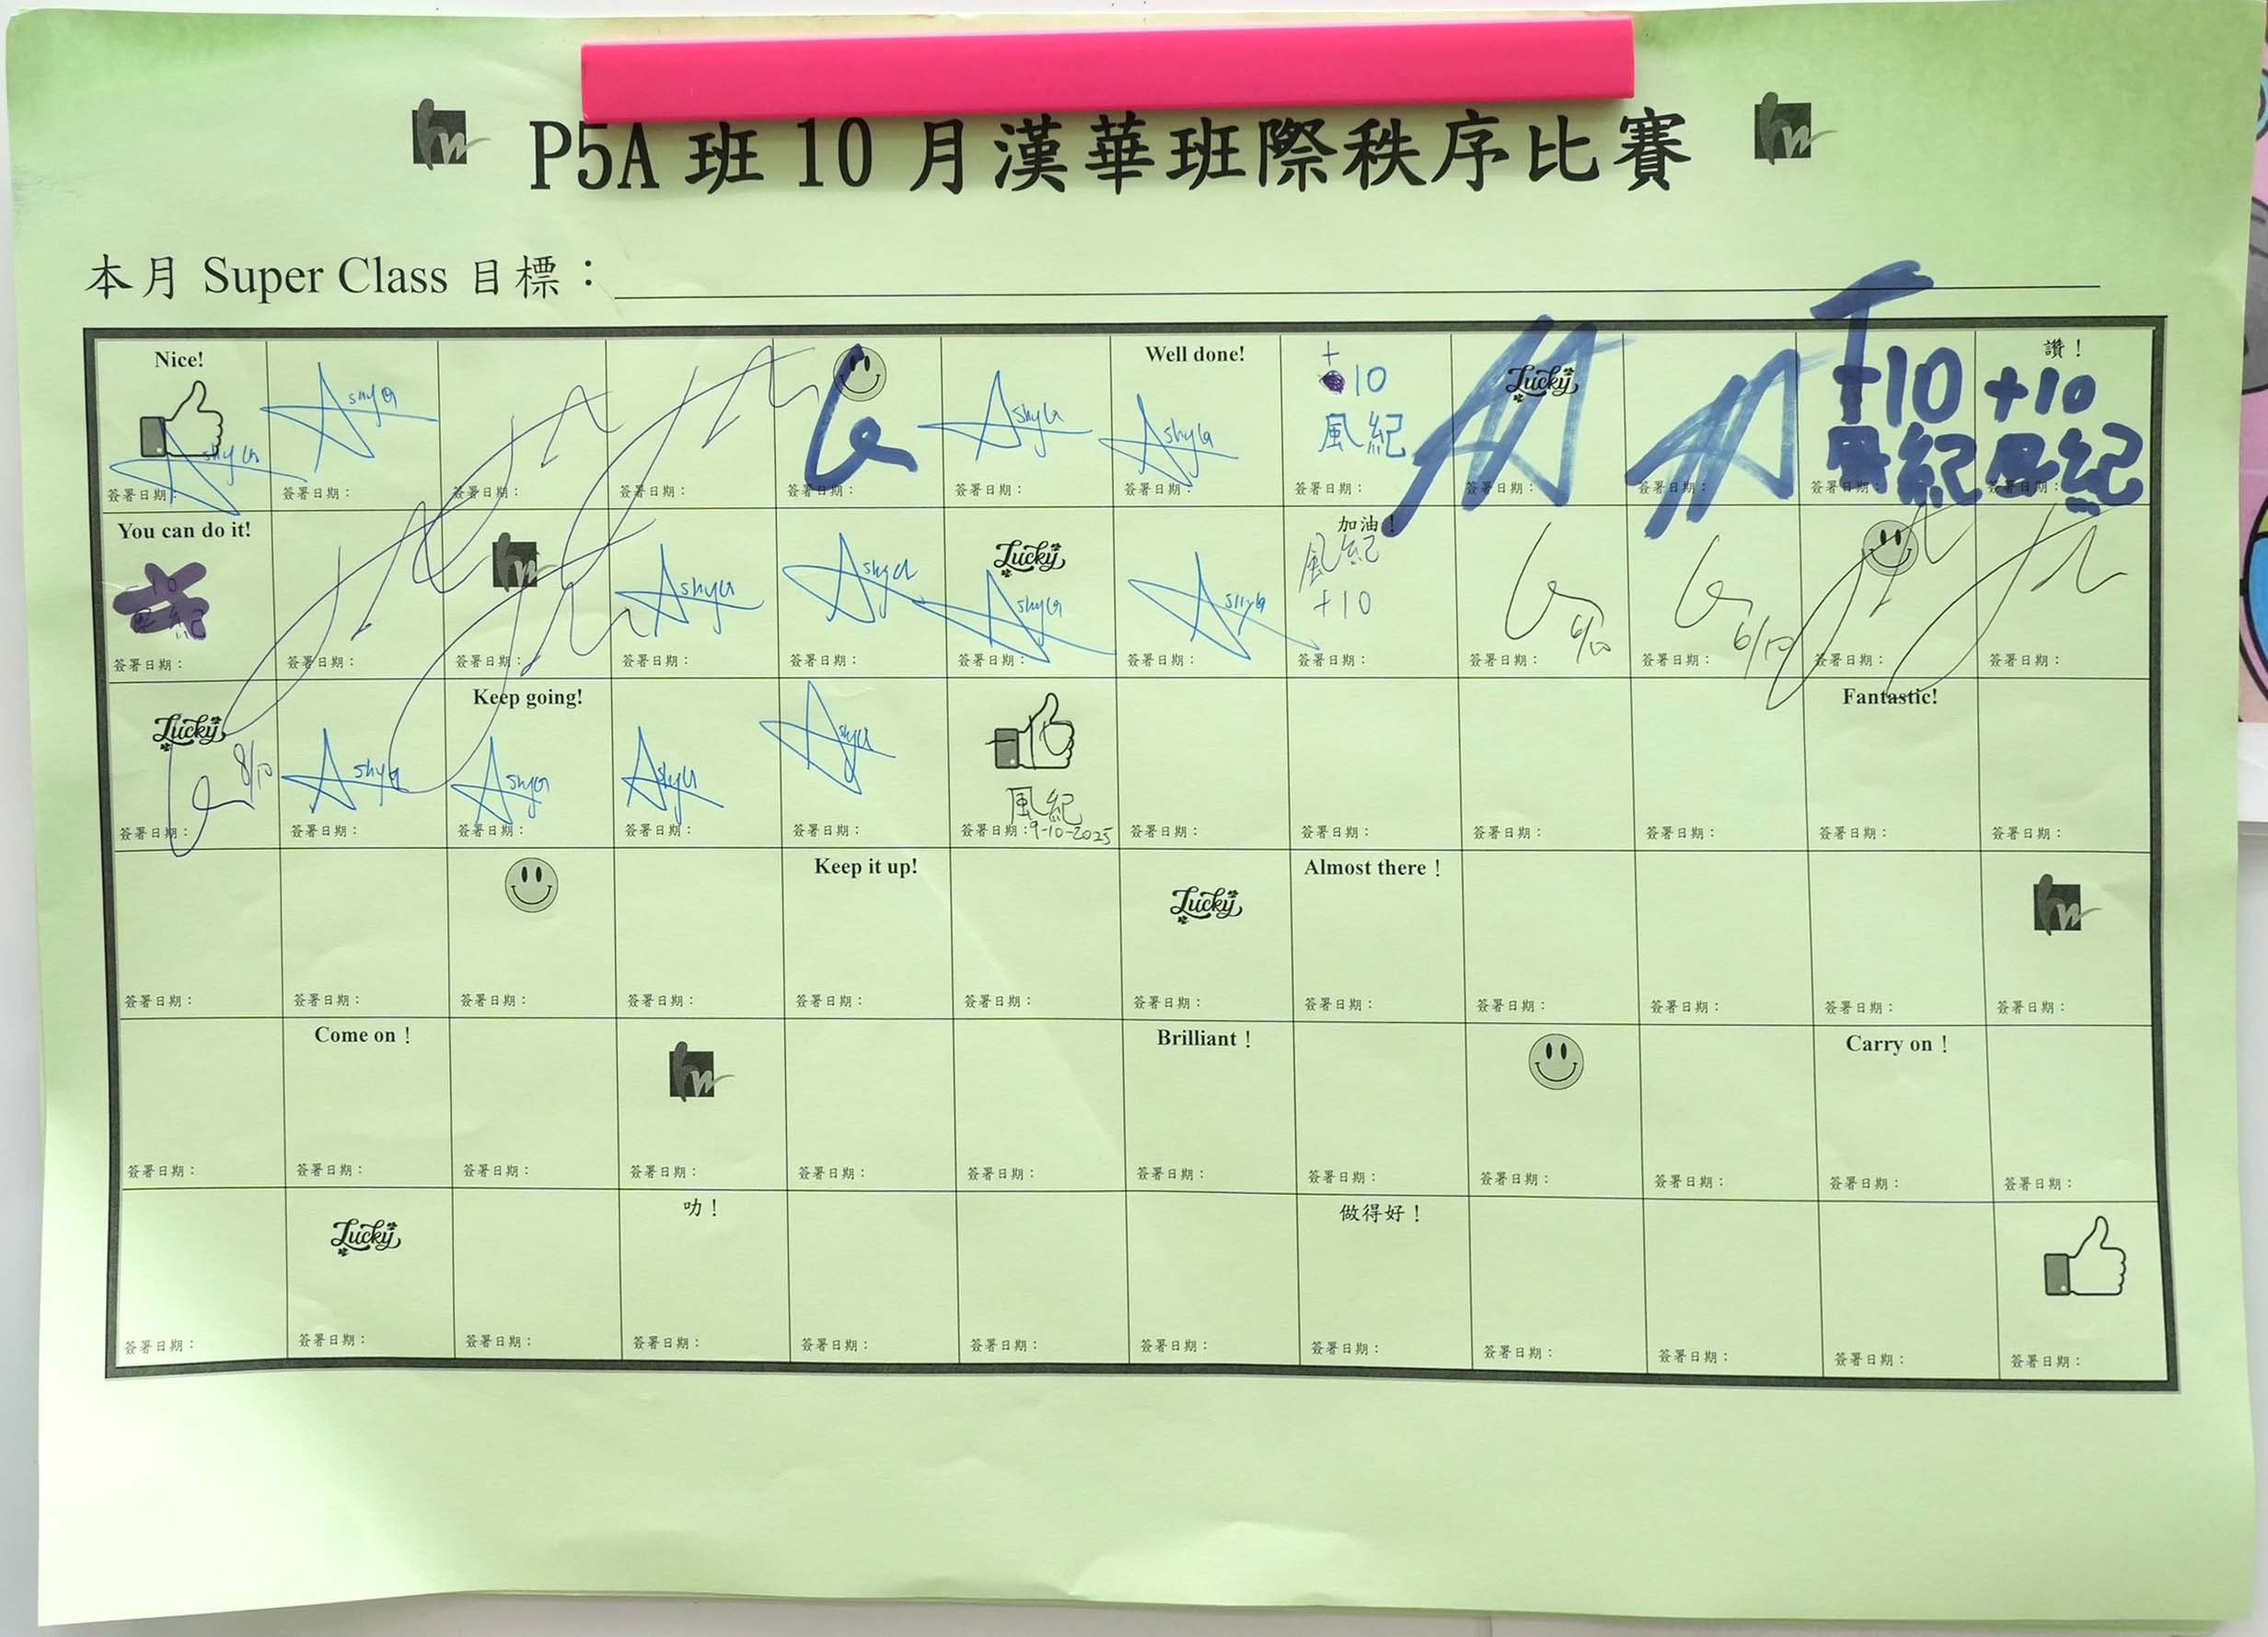 P5A 班 10 月漢華班際秩序比賽
本月 Super Class 目標：
Nice!
Ashya
簽署日期：
Ashya
簽署日期：
簽署日期：
簽署日期：
簽署日期：
Ashya
簽署日期：
Well done!
Ashya
簽署日期：
+10
風紀
簽署日期：
Lucky
簽署日期：
簽署日期：
+10
風紀
簽署日期：
讚！
+10
風紀
簽署日期：
You can do it!
簽署日期：
簽署日期：
hw
簽署日期：
Ashya
簽署日期：
Ashya
簽署日期：
Lucky
Ashya
簽署日期：
Ashya
簽署日期：
加油！
風紀
+10
簽署日期：
6/10
簽署日期：
6/10
簽署日期：
簽署日期：
簽署日期：
Lucky
8/10
簽署日期：
Ashya
簽署日期：
Keep going!
Ashya
簽署日期：
Ashya
簽署日期：
Ashya
簽署日期：
風紀
簽署日期：9-10-2025
簽署日期：
簽署日期：
簽署日期：
簽署日期：
Fantastic!
簽署日期：
簽署日期：
簽署日期：
簽署日期：
簽署日期：
簽署日期：
Keep it up!
簽署日期：
簽署日期：
Lucky
簽署日期：
Almost there！
簽署日期：
簽署日期：
簽署日期：
簽署日期：
hw
簽署日期：
簽署日期：
Come on！
簽署日期：
簽署日期：
hw
簽署日期：
簽署日期：
簽署日期：
Brilliant！
簽署日期：
簽署日期：
簽署日期：
簽署日期：
Carry on！
簽署日期：
簽署日期：
簽署日期：
Lucky
簽署日期：
簽署日期：
叻！
簽署日期：
簽署日期：
簽署日期：
簽署日期：
做得好！
簽署日期：
簽署日期：
簽署日期：
簽署日期：
簽署日期：